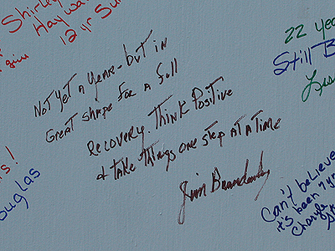 Shirley
Haywa
12 yr Su
22 yea
Still B
Not yet a year - but in
Great shape for a full
Recovery. Think Positive
& take things one step at a time
Jim
s!
ouglas
Can't believe
it's been 7 yr